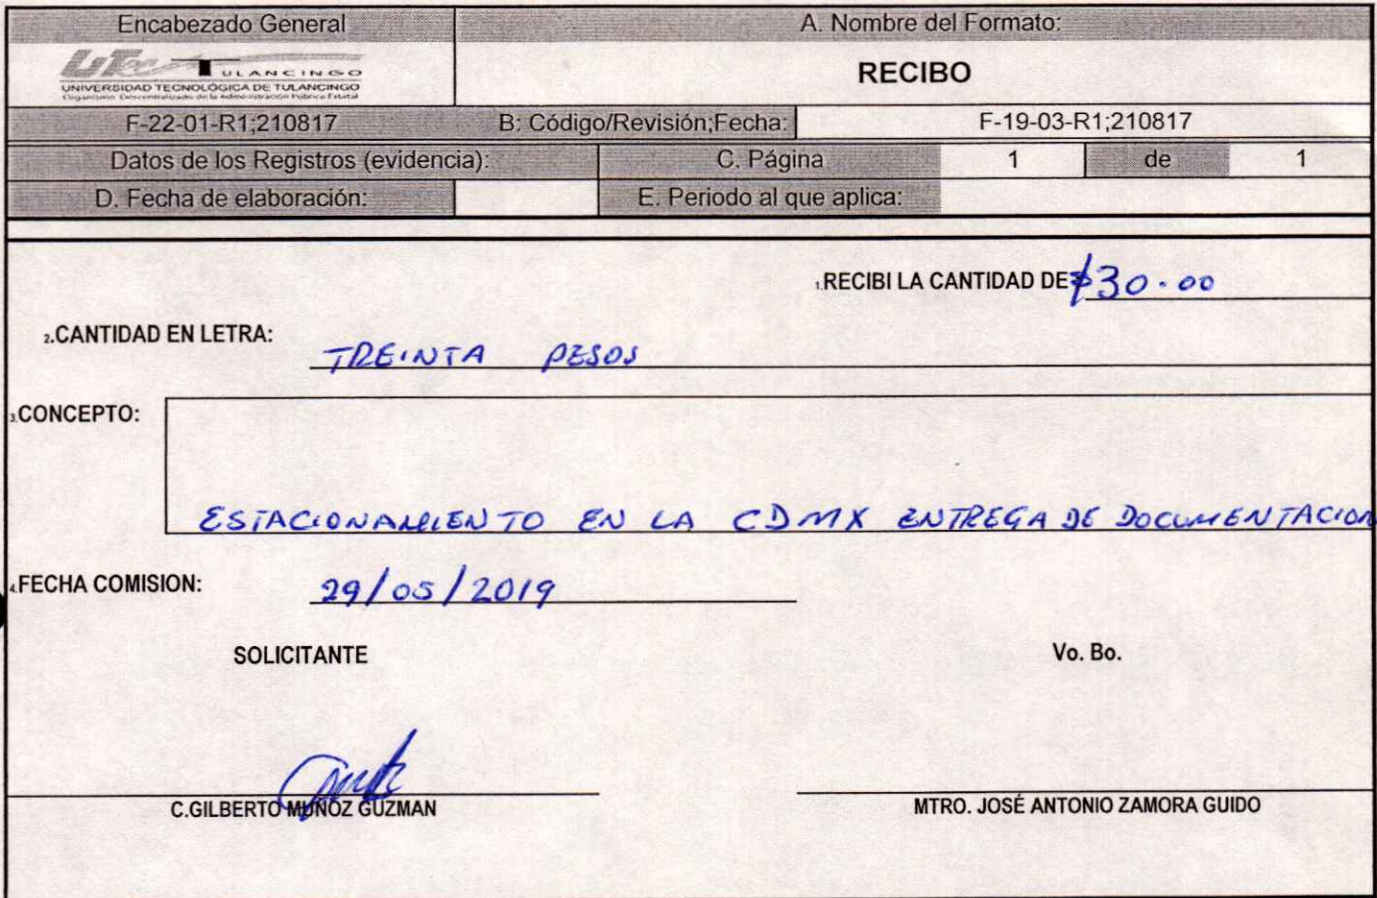 Encabezado General A. Nombre del Formato:
UTec TULANCINGO
UNIVERSIDAD TECNOLÓGICA DE TULANCINGO
Organismo Descentralizado de la Administración Pública Estatal
RECIBO
F-22-01-R1;210817 B: Código/Revisión;Fecha: F-19-03-R1;210817
Datos de los Registros (evidencia): C. Página 1 de 1
D. Fecha de elaboración: E. Periodo al que aplica:
1.RECIBI LA CANTIDAD DE $30.00
2.CANTIDAD EN LETRA: TREINTA PESOS
3.CONCEPTO:
ESTACIONAMIENTO EN LA CDMX ENTREGA DE DOCUMENTACION
4.FECHA COMISION: 29/05/2019
SOLICITANTE Vo. Bo.
C.GILBERTO MUÑOZ GUZMAN MTRO. JOSÉ ANTONIO ZAMORA GUIDO